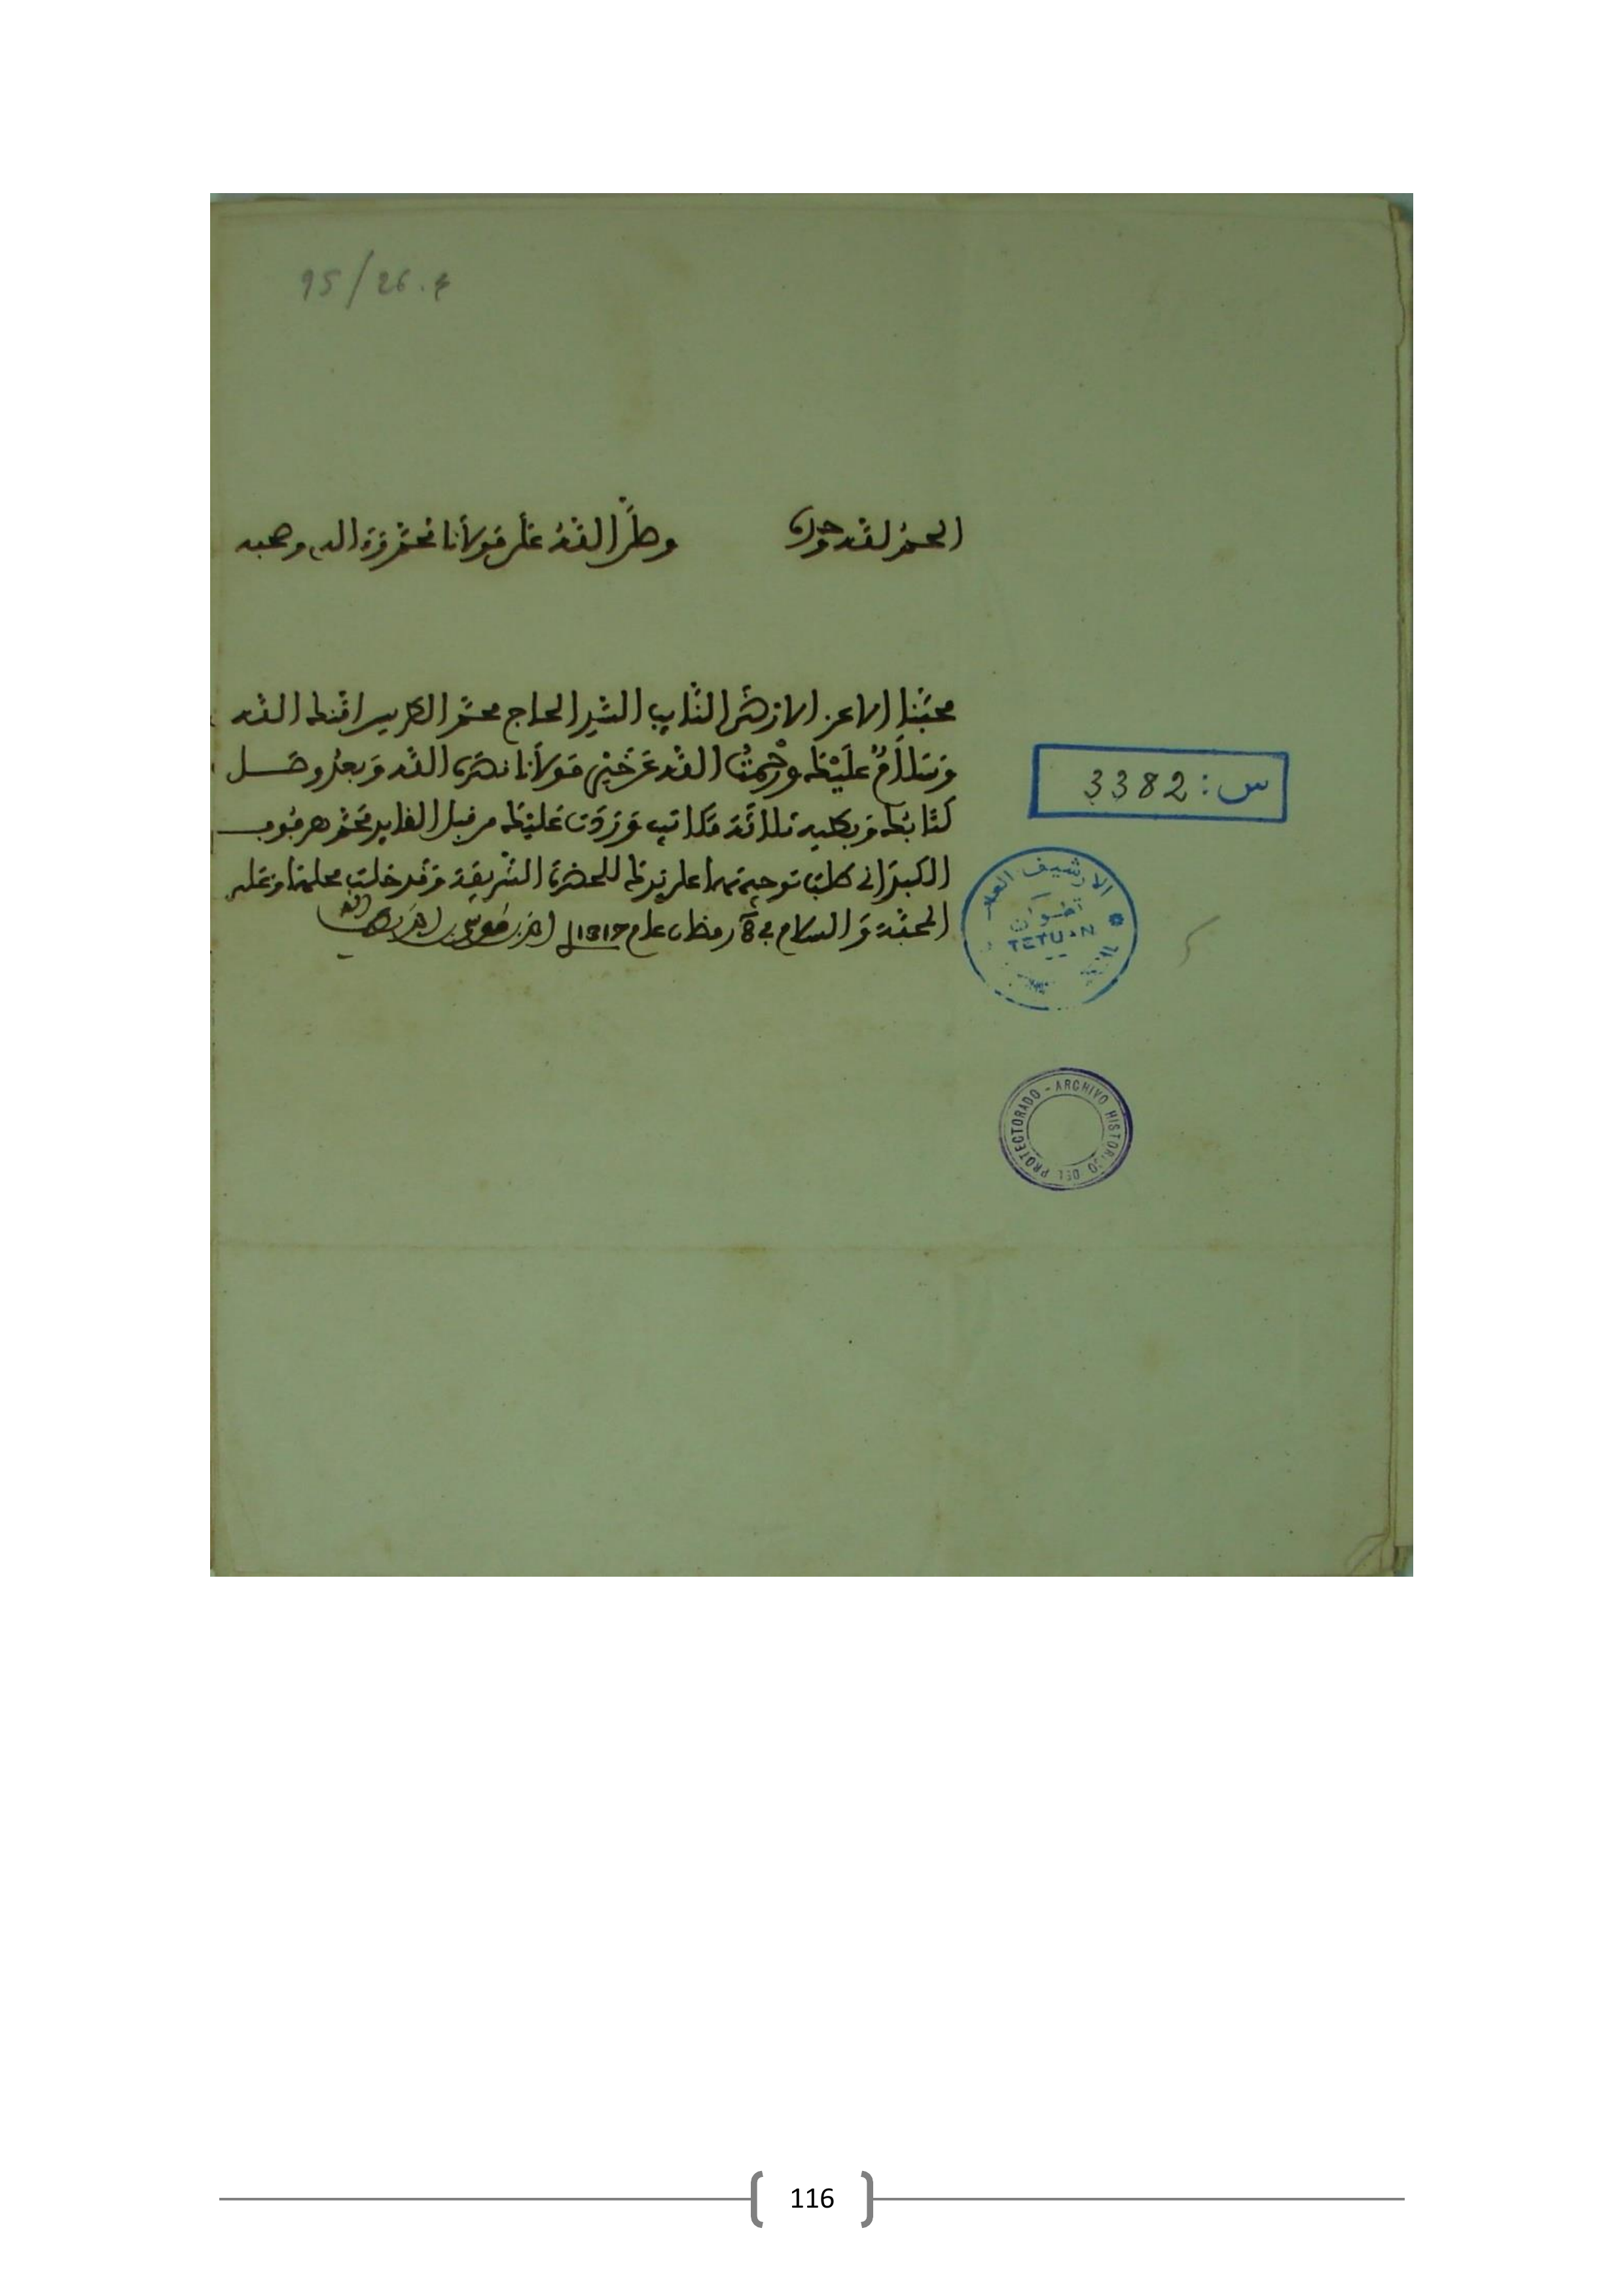 95/26.م
الحمد لله وحده وصلى الله على مولانا محمد وءاله وصحبه
محبنا الاعز الارضى النائب السيد الحاج محمد الطريس امنك الله
وسلام عليك ورحمت الله عن خير مولانا نصره الله وبعد وصل
كتابك وبطيه ثلاثة مكاتيب وردت عليك من قبل القايد محمد
التي طلبت توجيهها على يدك للحضرة الشريفة وقد دخلت محلها وعلى
المحبة والسلام في 8 رمضان عام 1317 احمد بن موسى بن احمد
س: 3382
الارشيف العام
تطوان
TETUAN
ARCHIVO HISTORICO DEL PROTECTORADO
116